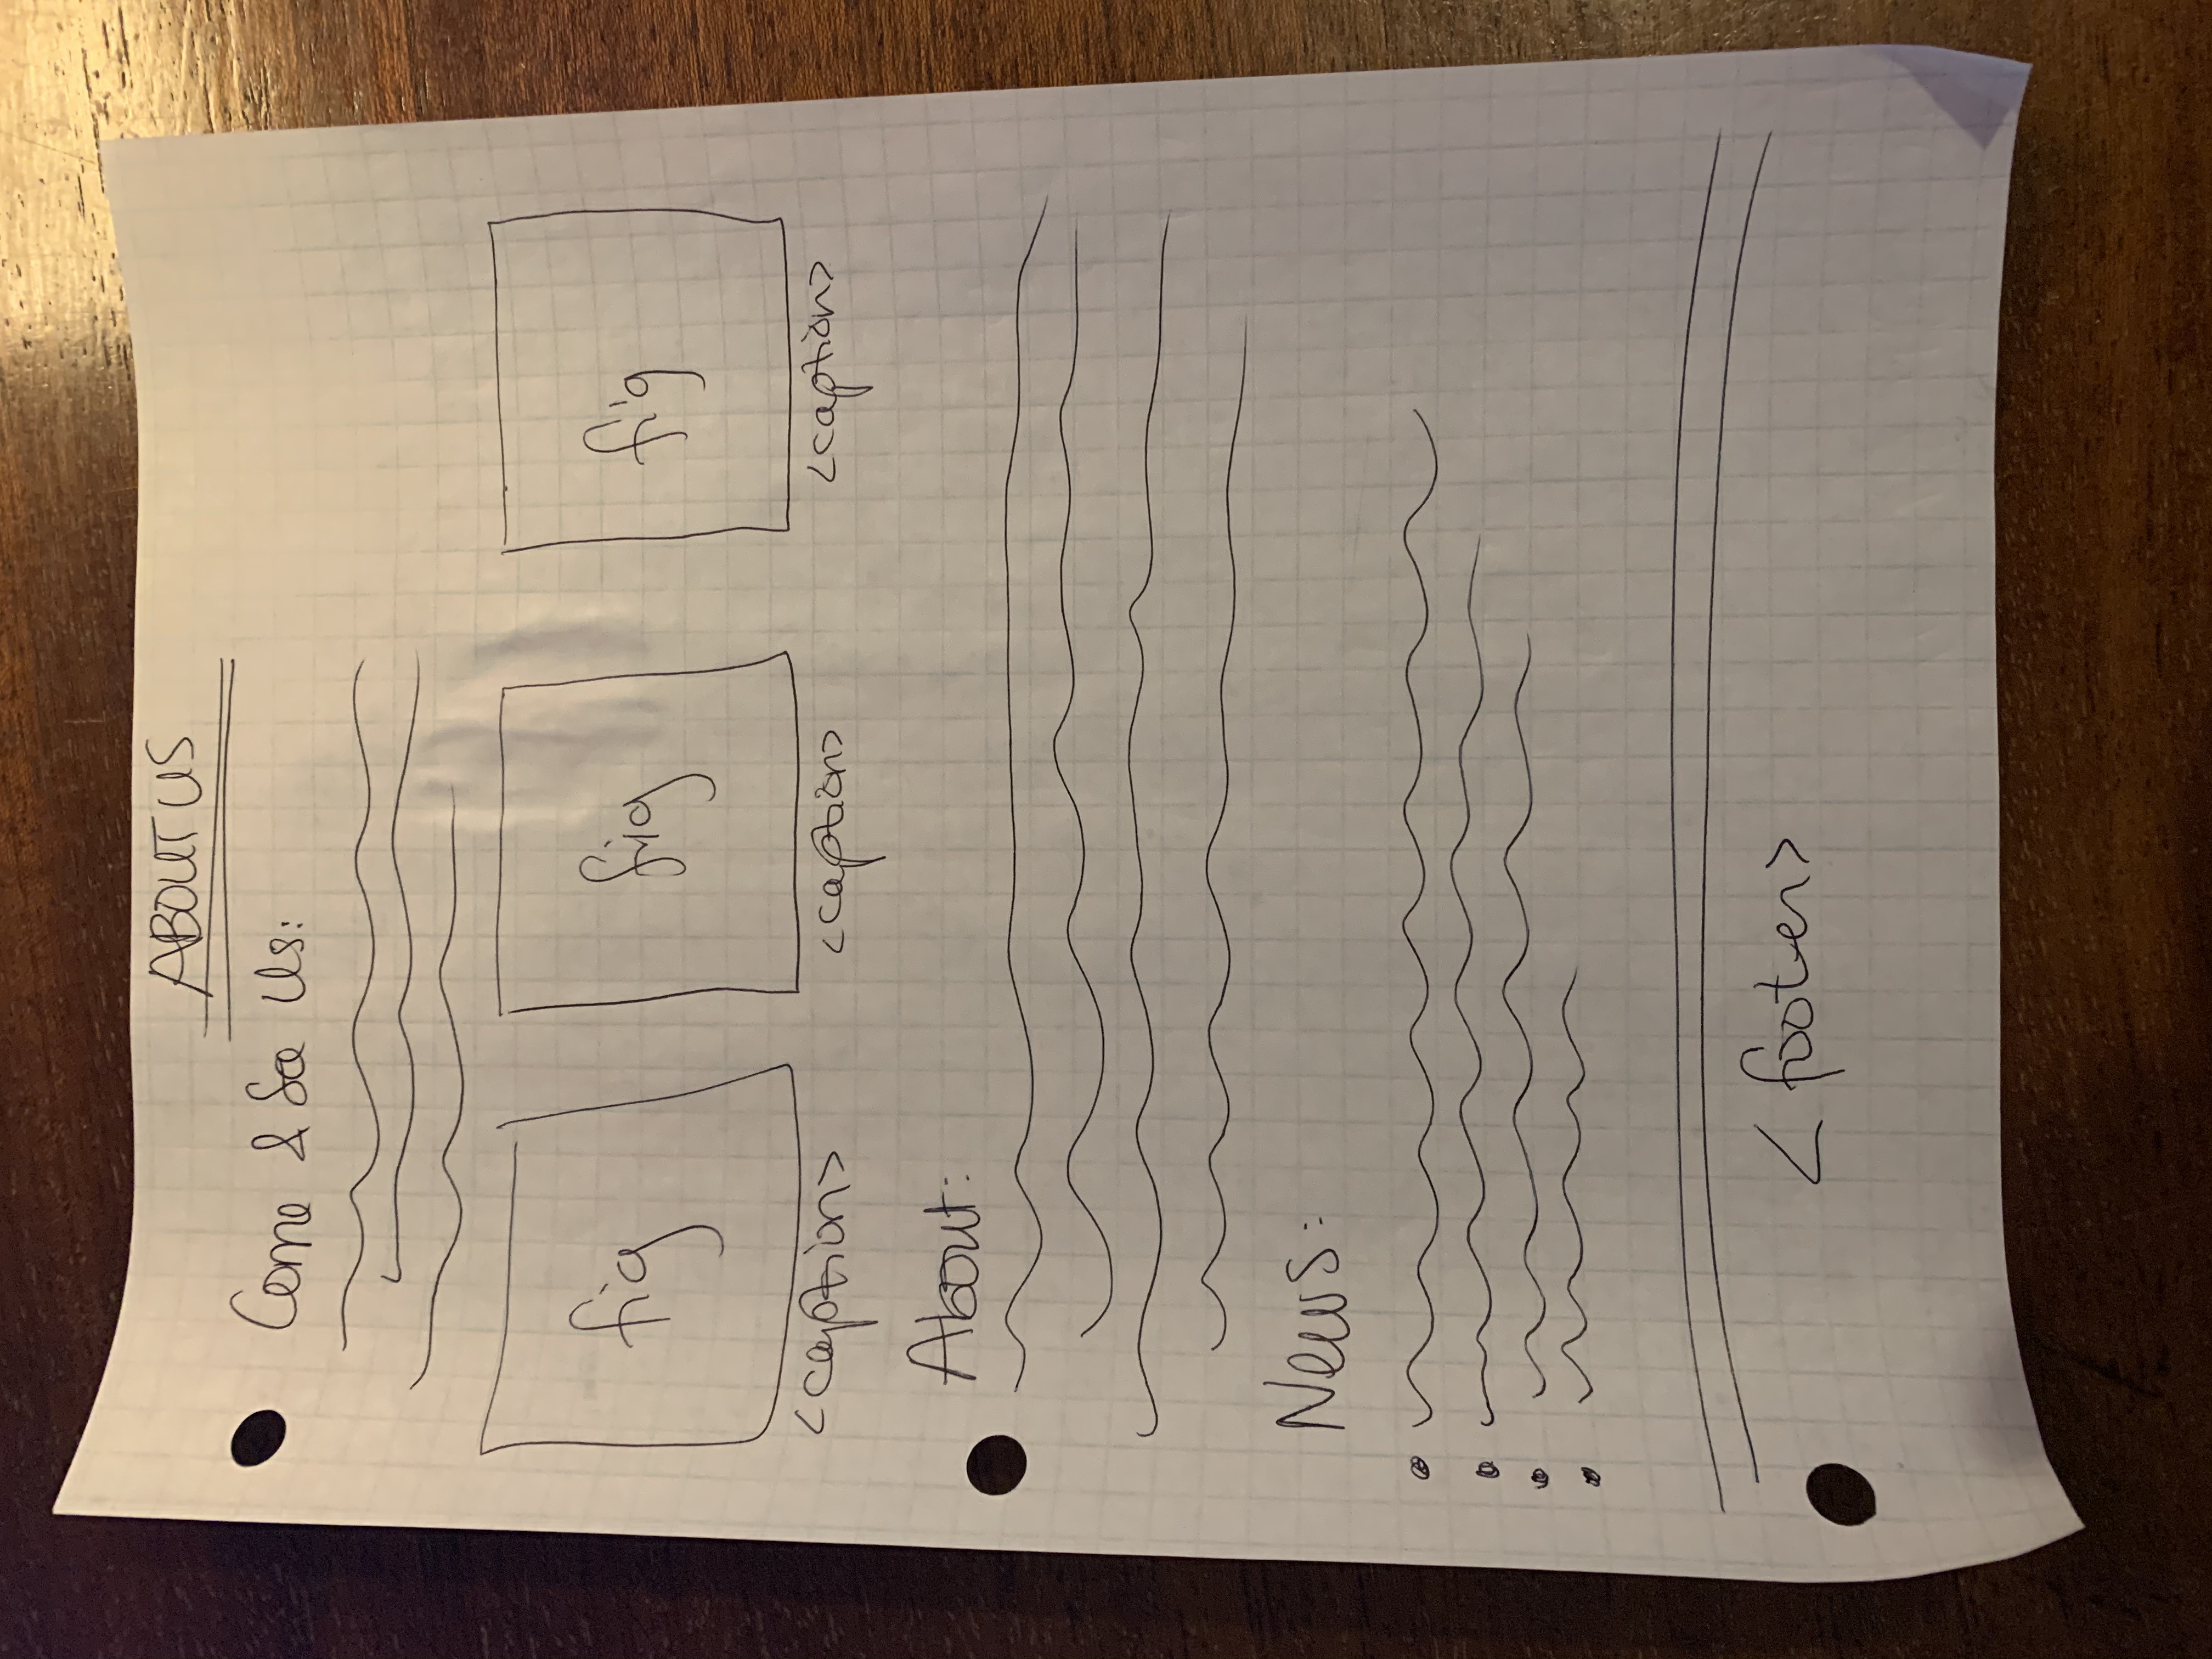 ABOUT US
Come & See Us:
fig fig fig
<caption> <caption> <caption>
About:
News:
<footer>